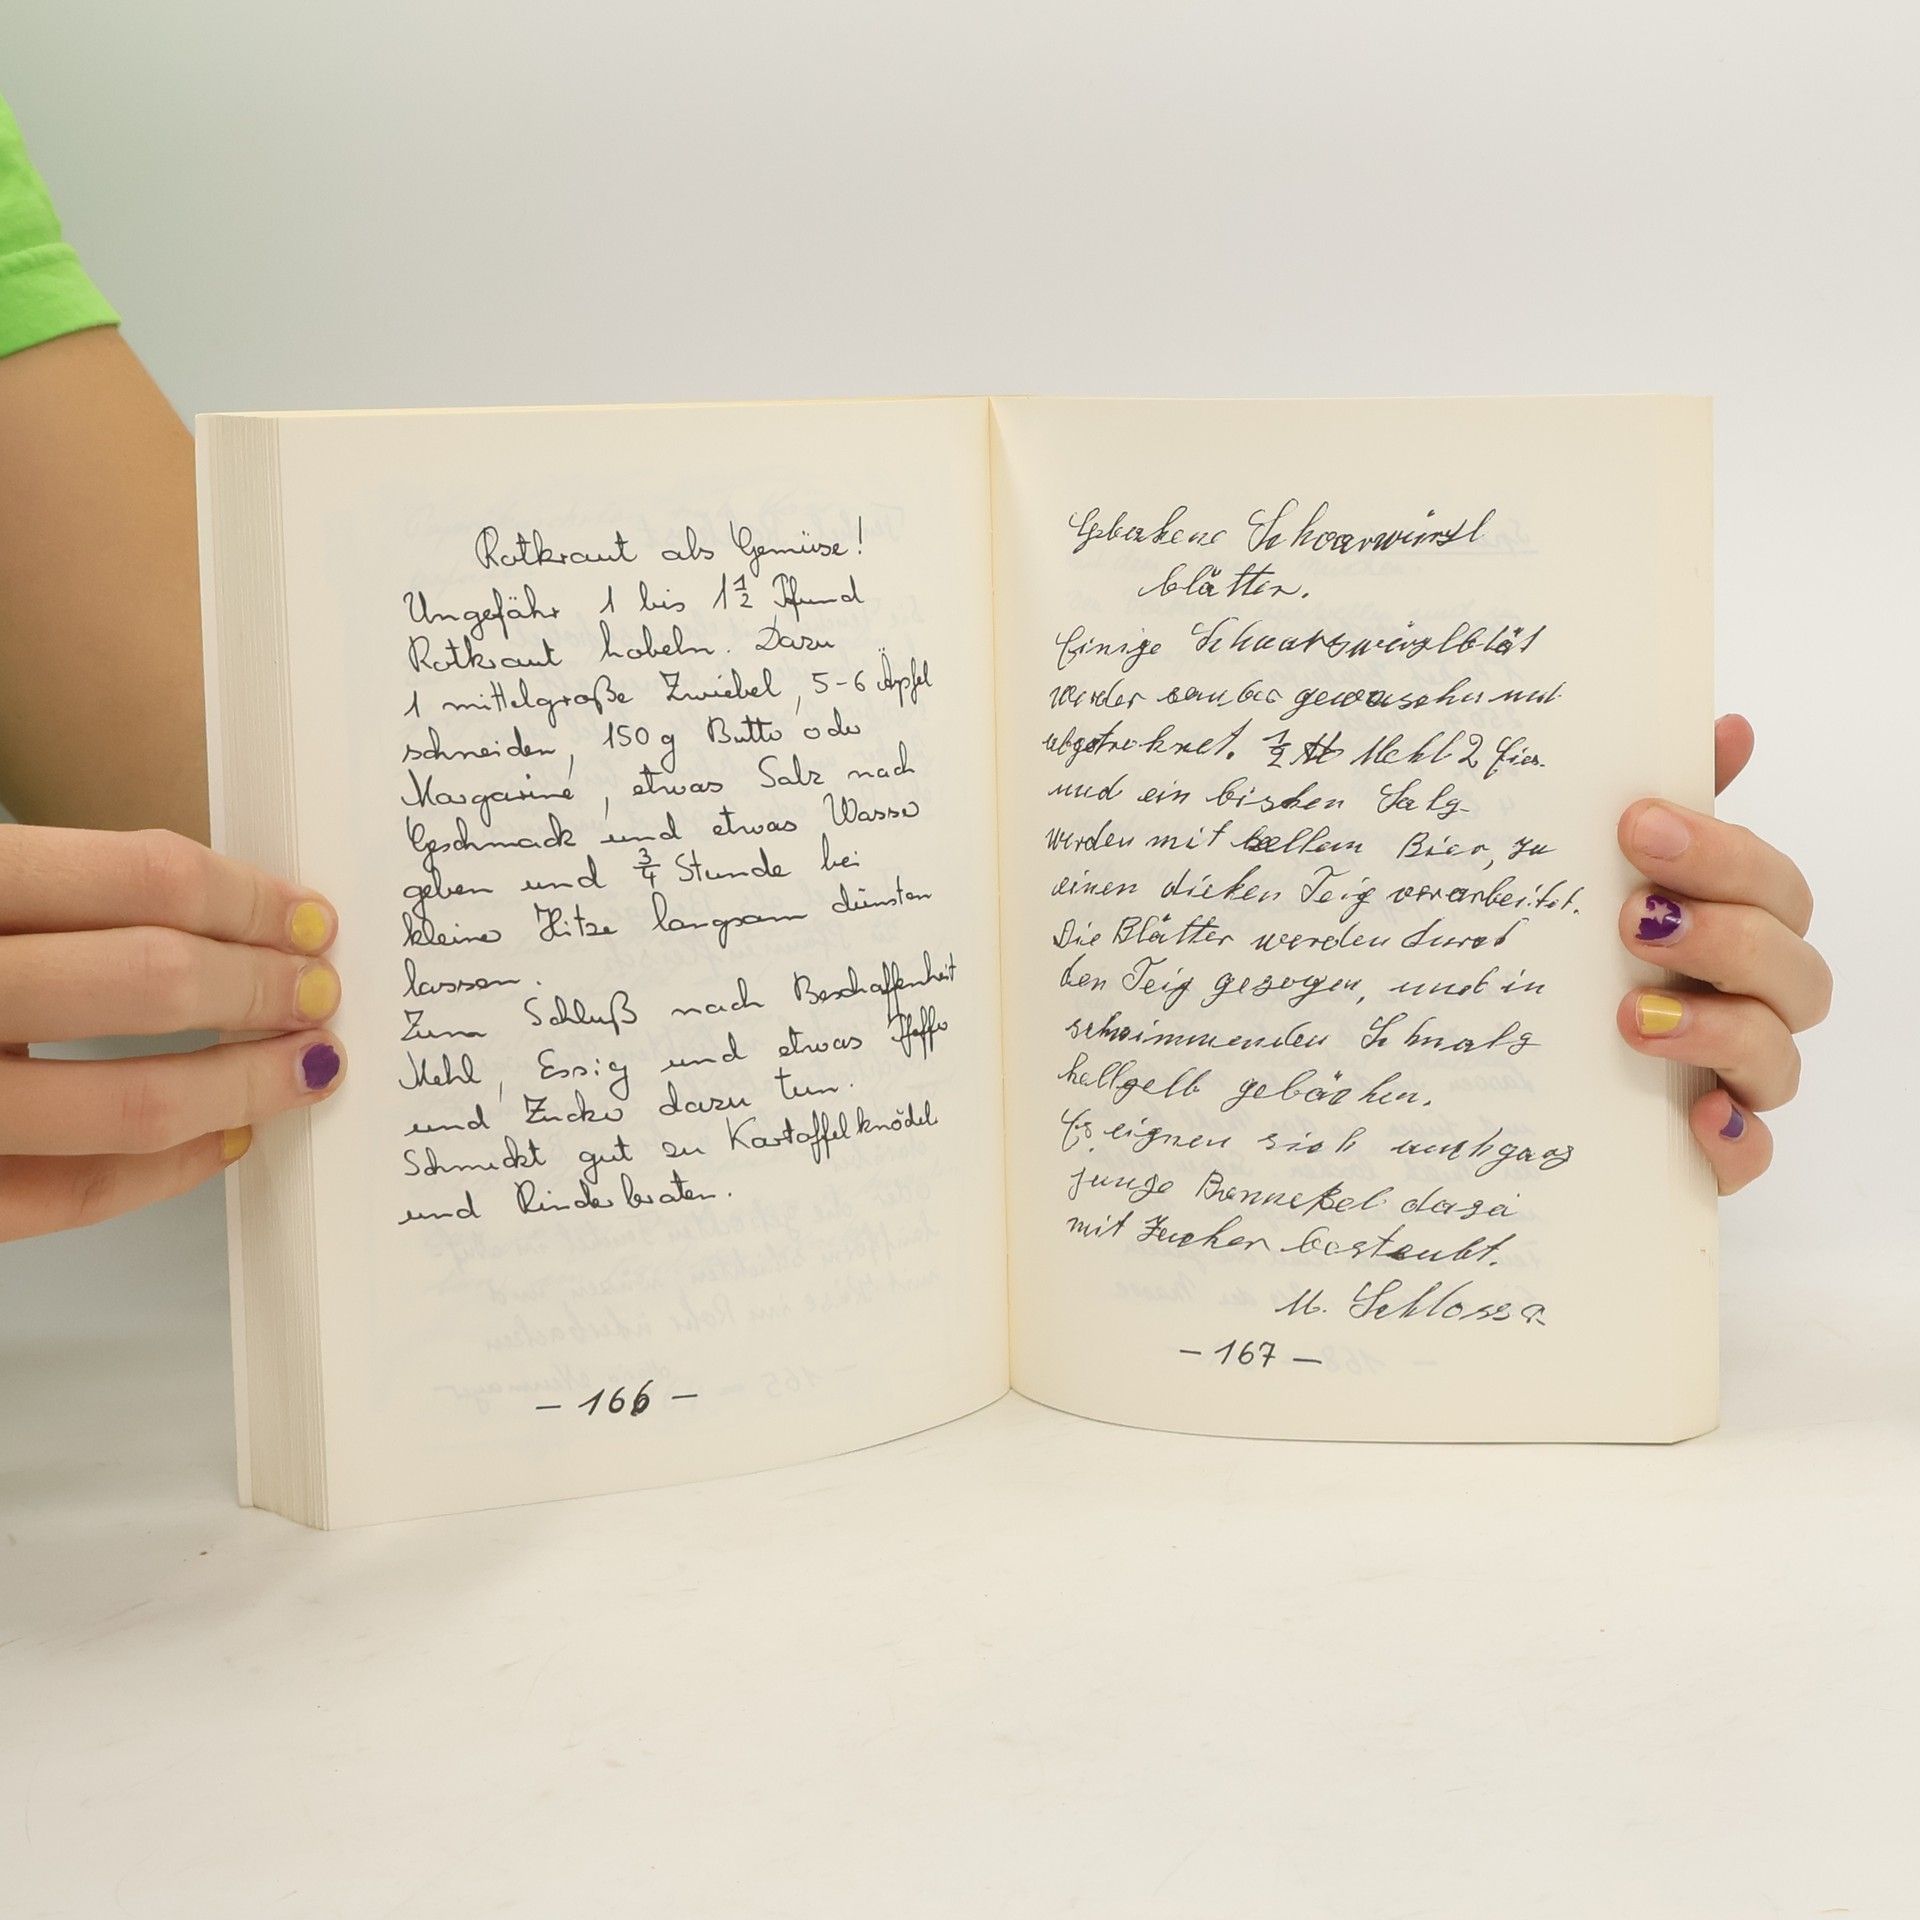 Rotkraut als Gemüse!
Ungefähr 1 bis 1 1/2 Pfund
Rotkraut hobeln. Dazu
1 mittelgroße Zwiebel, 5-6 Äpfel
schneiden, 150 g Butter oder
Margarine, etwas Salz nach
Geschmack und etwas Wasser
geben und 3/4 Stunde bei
kleiner Hitze langsam dünsten
lassen.
Zum Schluß nach Beschaffenheit
Mehl, Essig und etwas Pfeffer
und Zucker dazu tun.
Schmeckt gut zu Kartoffelknödel
und Rinderbraten.
- 166 -
Gebakene Schoarwürzl
blätter.
Einige
werden sauber gewaschn und
abgetroknet. 1/2 ℔ Mehl 2 Eier
und ein bisken Salz
werden mit hellem Bier, zu
einen dicken Teig verarbeitet.
Die Blätter werden durch
den Teig gezogen, und in
schwimmenden Schmalz
hellgelb gebäcken.
Es eignen sich auch ganz
junge dazu
mit Zucker bestaubt.
M. Schlosser
- 167 -